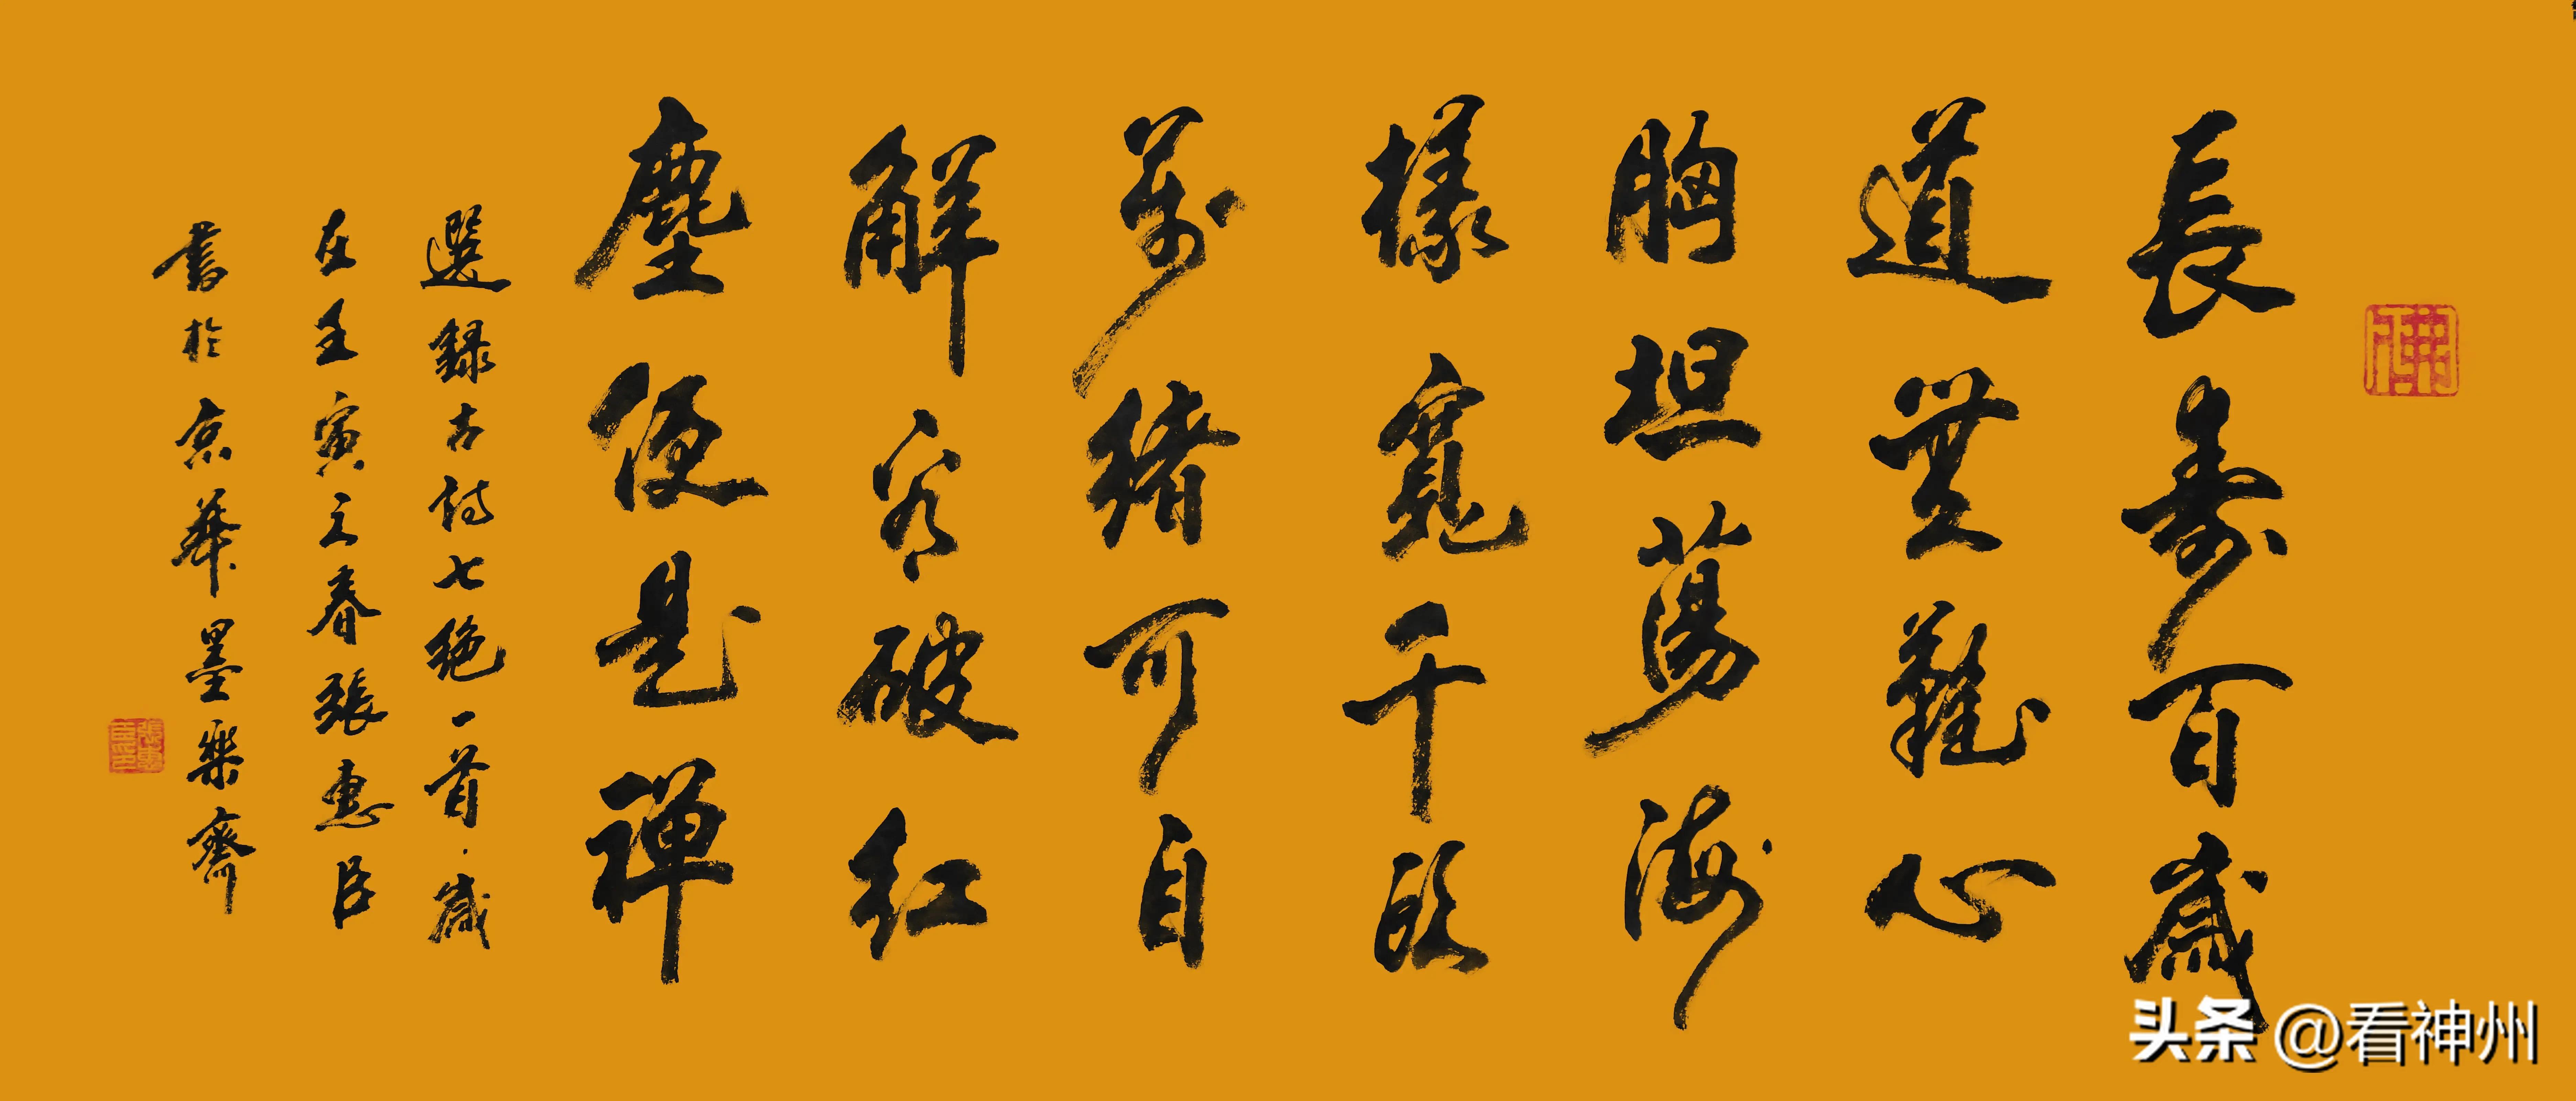 長壽百歲
道無難心
胸坦蕩海
樣寬千頭
萬緒可自
解看破紅
塵便是禪
選錄古詩七絕一首歲
在壬寅之春張惠臣
書於京華墨樂齋
佛
張惠臣印
头条 @看神州